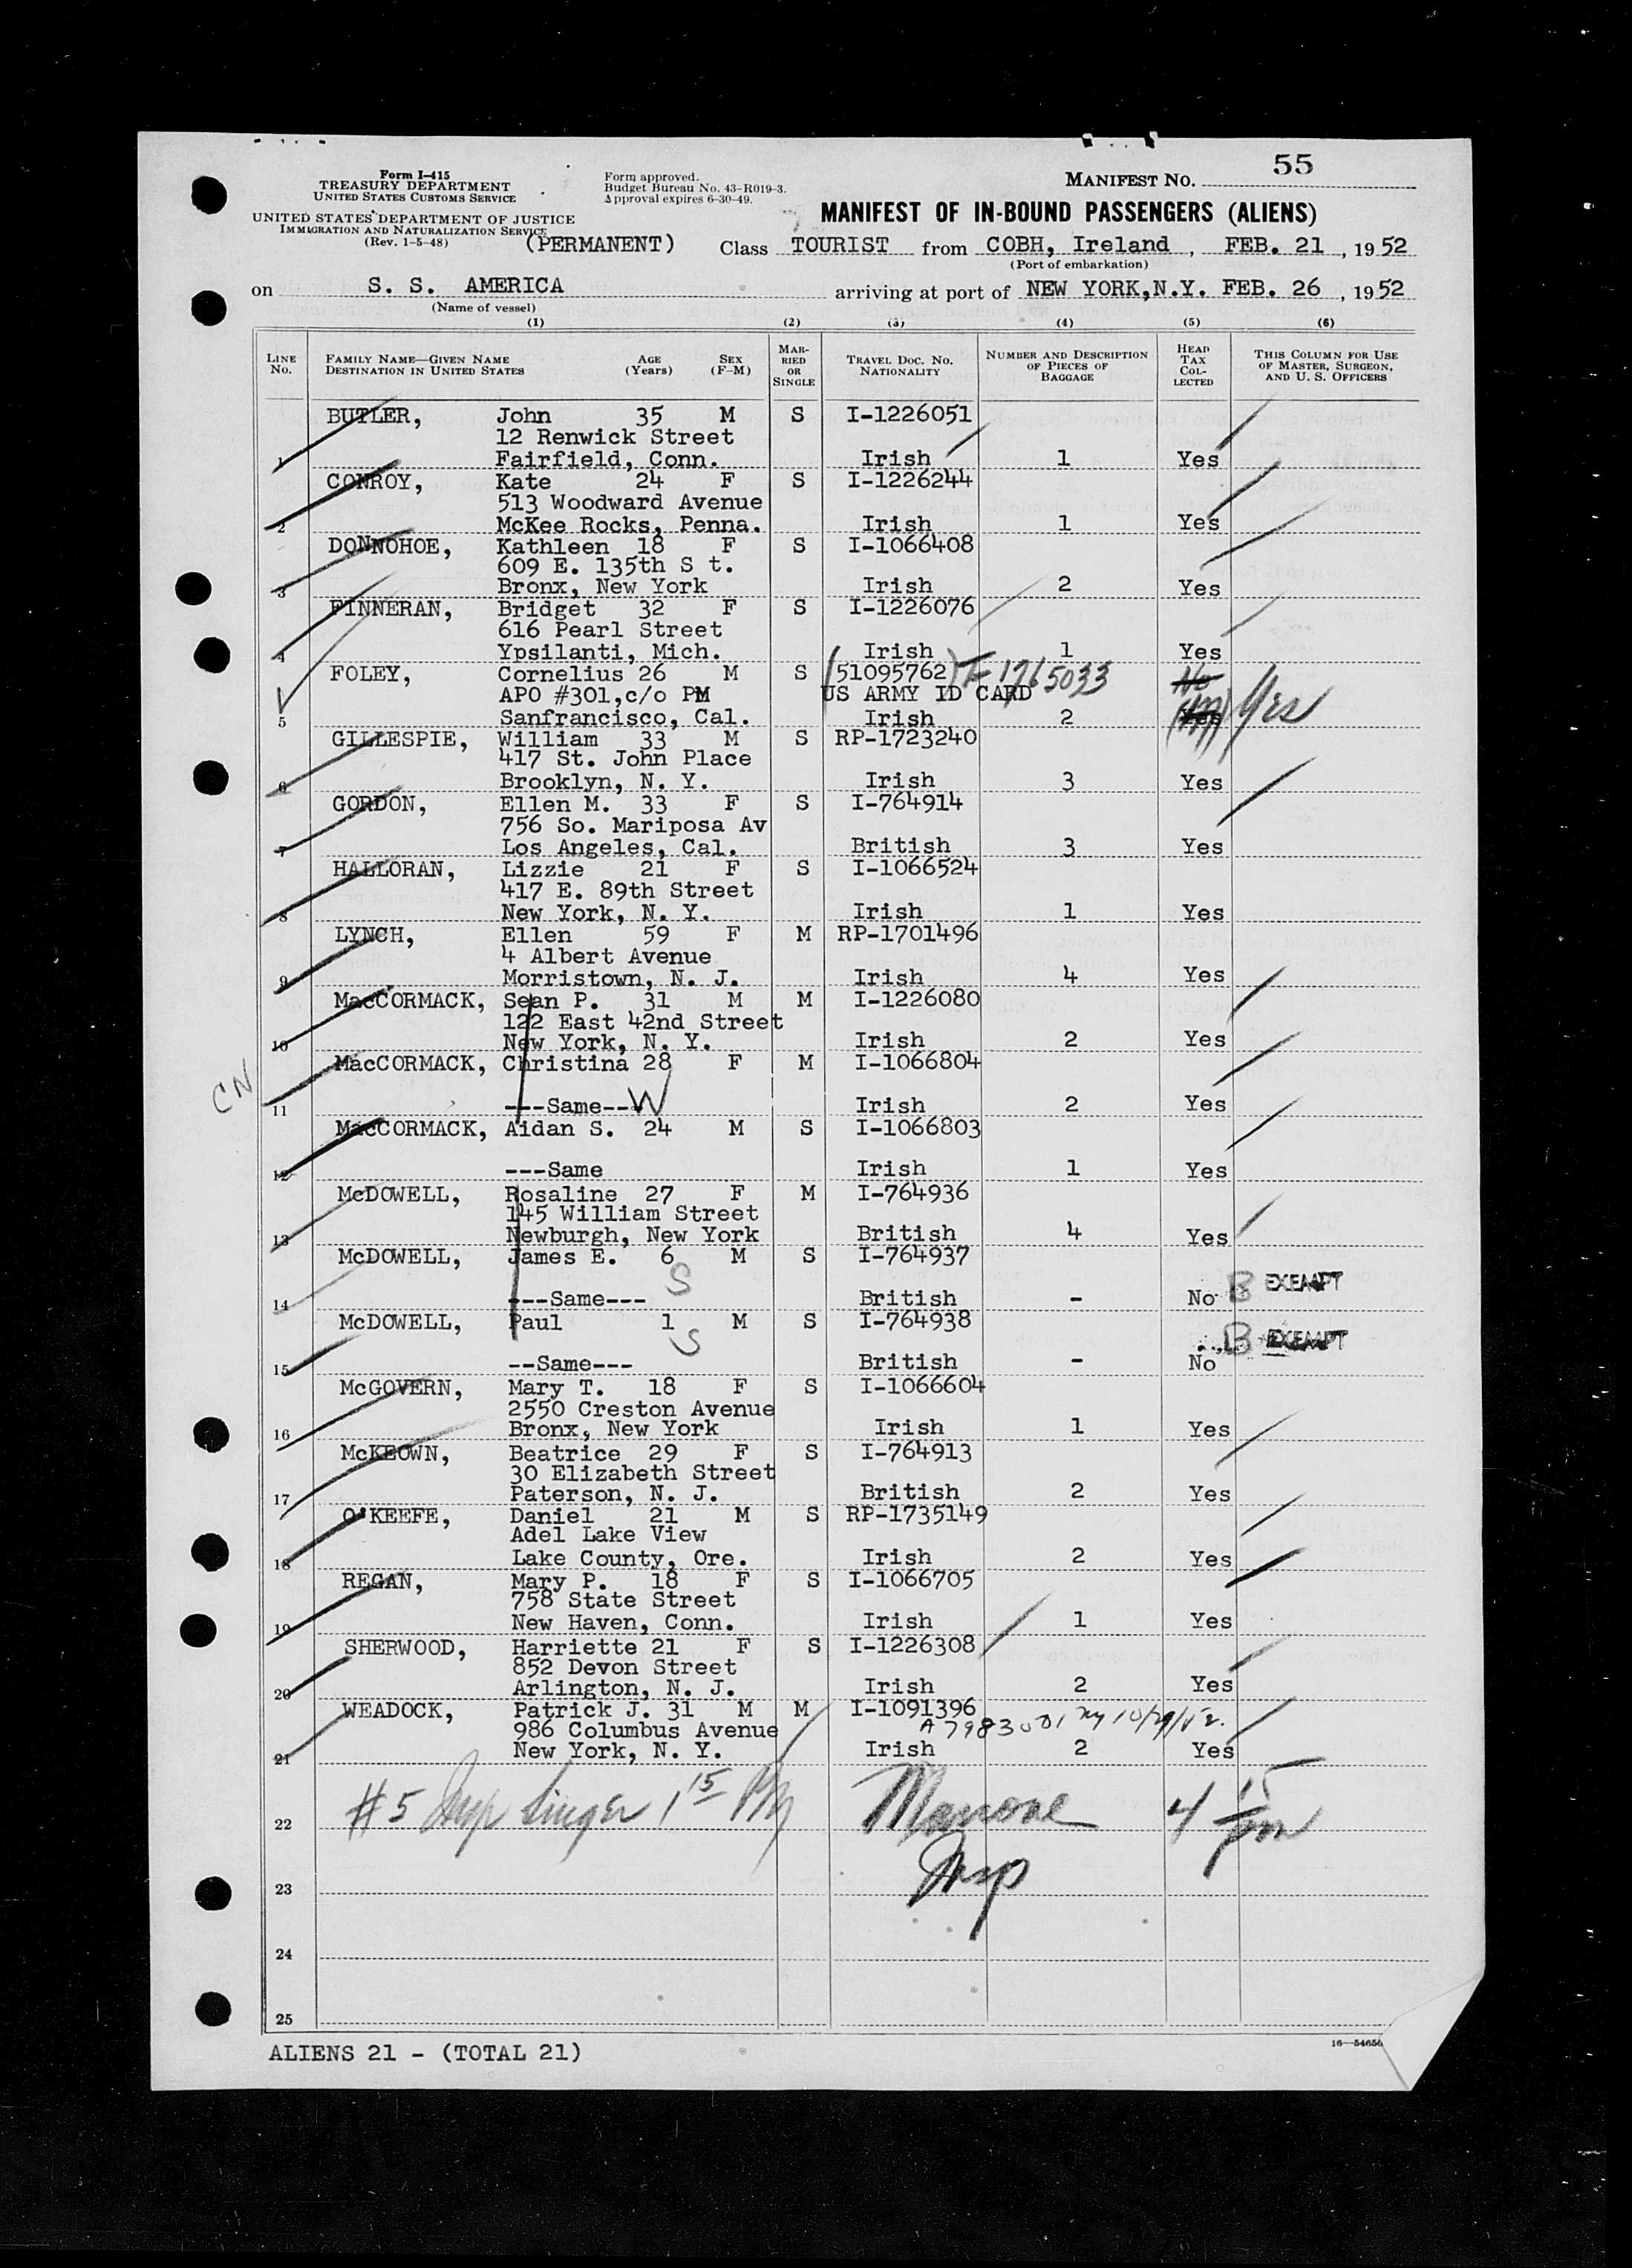 Form I-415
TREASURY DEPARTMENT
UNITED STATES CUSTOMS SERVICE
UNITED STATES DEPARTMENT OF JUSTICE
IMMIGRATION AND NATURALIZATION SERVICE
(Rev. 1-5-48)
Form approved.
Budget Bureau No. 43-R019-3.
Approval expires 6-30-49.
MANIFEST NO. 55
MANIFEST OF IN-BOUND PASSENGERS (ALIENS)
(PERMANENT) Class TOURIST from COBH, Ireland, FEB. 21, 1952
(Port of embarkation)
on S. S. AMERICA arriving at port of NEW YORK,N.Y. FEB. 26, 1952
(Name of vessel)
(1) (2) (3) (4) (5) (6)
LINE No. FAMILY NAME—GIVEN NAME DESTINATION IN UNITED STATES AGE (Years) SEX (F-M) MARRIED OR SINGLE TRAVEL DOC. NO. NATIONALITY NUMBER AND DESCRIPTION OF PIECES OF BAGGAGE HEAD TAX COLLECTED THIS COLUMN FOR USE OF MASTER, SURGEON, AND U. S. OFFICERS
BUTLER, John 35 M S I-1226051
12 Renwick Street
1 Fairfield, Conn. Irish 1 Yes
CONROY, Kate 24 F S I-1226244
513 Woodward Avenue
2 McKee Rocks, Penna. Irish 1 Yes
DONNOHOE, Kathleen 18 F S I-1066408
609 E. 135th S t.
3 Bronx, New York Irish 2 Yes
FINNERAN, Bridget 32 F S I-1226076
616 Pearl Street
4 Ypsilanti, Mich. Irish 1 Yes
FOLEY, Cornelius 26 M S (51095762) F 1765033 No
APO #301,c/o PM US ARMY ID CARD
5 Sanfrancisco, Cal. Irish 2 Yes Yes
GILLESPIE, William 33 M S RP-1723240
417 St. John Place
6 Brooklyn, N. Y. Irish 3 Yes
GORDON, Ellen M. 33 F S I-764914
756 So. Mariposa Av
7 Los Angeles, Cal. British 3 Yes
HALLORAN, Lizzie 21 F S I-1066524
417 E. 89th Street
8 New York, N. Y. Irish 1 Yes
LYNCH, Ellen 59 F M RP-1701496
4 Albert Avenue
9 Morristown, N. J. Irish 4 Yes
MacCORMACK, Sean P. 31 M M I-1226080
122 East 42nd Street
10 New York, N. Y. Irish 2 Yes
MacCORMACK, Christina 28 F M I-1066804
CN 11 ---Same--- W Irish 2 Yes
MacCORMACK, Aidan S. 24 M S I-1066803
12 ---Same Irish 1 Yes
McDOWELL, Rosaline 27 F M I-764936
145 William Street
13 Newburgh, New York British 4 Yes
McDOWELL, James E. 6 M S I-764937
S
14 ---Same--- British - No B EXEMPT
McDOWELL, Paul 1 M S I-764938
S
15 --Same--- British - No B EXEMPT
McGOVERN, Mary T. 18 F S I-1066604
2550 Creston Avenue
16 Bronx, New York Irish 1 Yes
McKEOWN, Beatrice 29 F S I-764913
30 Elizabeth Street
17 Paterson, N. J. British 2 Yes
O'KEEFE, Daniel 21 M S RP-1735149
Adel Lake View
18 Lake County, Ore. Irish 2 Yes
REGAN, Mary P. 18 F S I-1066705
758 State Street
19 New Haven, Conn. Irish 1 Yes
SHERWOOD, Harriette 21 F S I-1226308
852 Devon Street
20 Arlington, N. J. Irish 2 Yes
WEADOCK, Patrick J. 31 M M I-1091396
986 Columbus Avenue A 7983001 ny 10/29/52.
21 New York, N. Y. Irish 2 Yes
22 #5 Insp Singer 1 15 PM Marrone 4 15 pm
Insp
23
24
25
ALIENS 21 - (TOTAL 21)